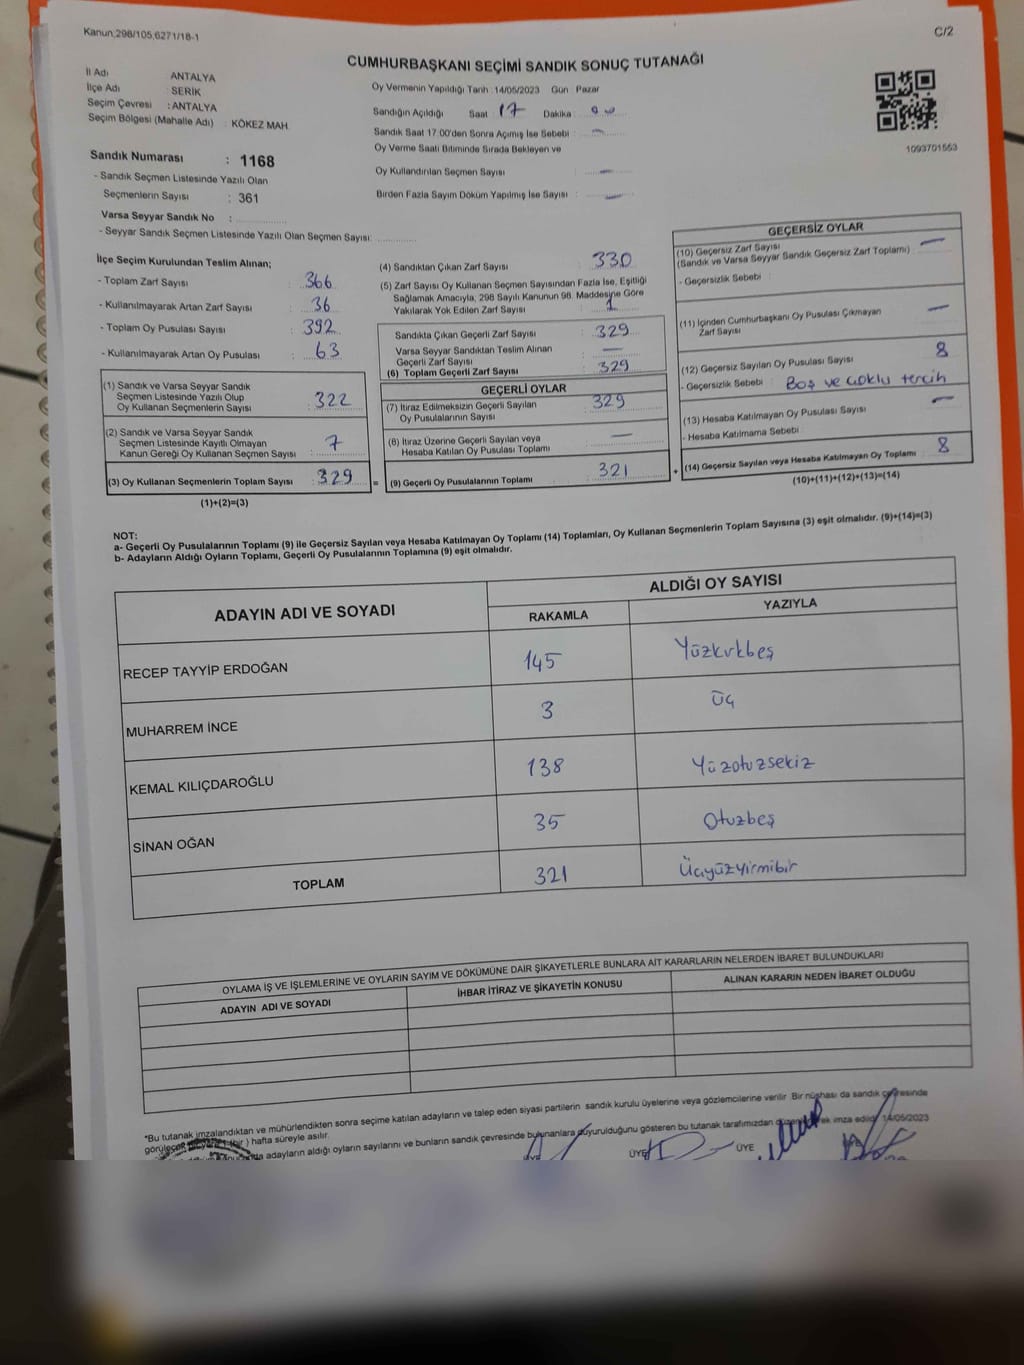 Kanun;298/105,6271/18-1
C/2
CUMHURBAŞKANI SEÇİMİ SANDIK SONUÇ TUTANAĞI
İl Adı : ANTALYA
İlçe Adı : SERİK
Seçim Çevresi : ANTALYA
Seçim Bölgesi (Mahalle Adı) : KÖKEZ MAH.
Oy Vermenin Yapıldığı Tarih : 14/05/2023 Gün : Pazar
Sandığın Açıldığı Saat : 17 Dakika : 00
Sandık Saat 17.00'den Sonra Açımış İse Sebebi : —
Oy Verme Saati Bitiminde Sırada Bekleyen ve
Oy Kullandırılan Seçmen Sayısı : —
Birden Fazla Sayım Döküm Yapılmış İse Sayısı : —
1093701553
Sandık Numarası : 1168
- Sandık Seçmen Listesinde Yazılı Olan
Seçmenlerin Sayısı : 361
Varsa Seyyar Sandık No :
- Seyyar Sandık Seçmen Listesinde Yazılı Olan Seçmen Sayısı:
İlçe Seçim Kurulundan Teslim Alınan;
- Toplam Zarf Sayısı : 366
- Kullanılmayarak Artan Zarf Sayısı : 36
- Toplam Oy Pusulası Sayısı : 392
- Kullanılmayarak Artan Oy Pusulası : 63
(1) Sandık ve Varsa Seyyar Sandık
Seçmen Listesinde Yazılı Olup
Oy Kullanan Seçmenlerin Sayısı : 322
(2) Sandık ve Varsa Seyyar Sandık
Seçmen Listesinde Kayıtlı Olmayan
Kanun Gereği Oy Kullanan Seçmen Sayısı : 7
(3) Oy Kullanan Seçmenlerin Toplam Sayısı : 329
(1)+(2)=(3)
(4) Sandıktan Çıkan Zarf Sayısı : 330
(5) Zarf Sayısı Oy Kullanan Seçmen Sayısından Fazla İse, Eşitliği
Sağlamak Amacıyla, 298 Sayılı Kanunun 98. Maddesine Göre
Yakılarak Yok Edilen Zarf Sayısı : 1
Sandıkta Çıkan Geçerli Zarf Sayısı : 329
Varsa Seyyar Sandıktan Teslim Alınan
Geçerli Zarf Sayısı : —
(6) Toplam Geçerli Zarf Sayısı : 329
GEÇERLİ OYLAR
(7) İtiraz Edilmeksizin Geçerli Sayılan
Oy Pusulalarının Sayısı : 329
(8) İtiraz Üzerine Geçerli Sayılan veya
Hesaba Katılan Oy Pusulası Toplamı : —
= (9) Geçerli Oy Pusulalarının Toplamı : 321 +
GEÇERSİZ OYLAR
(10) Geçersiz Zarf Sayısı
(Sandık ve Varsa Seyyar Sandık Geçersiz Zarf Toplamı) : —
- Geçersizlik Sebebi :
(11) İçinden Cumhurbaşkanı Oy Pusulası Çıkmayan
Zarf Sayısı : —
(12) Geçersiz Sayılan Oy Pusulası Sayısı : 8
- Geçersizlik Sebebi : Boş ve çoklu tercih
(13) Hesaba Katılmayan Oy Pusulası Sayısı : —
- Hesaba Katılmama Sebebi :
(14) Geçersiz Sayılan veya Hesaba Katılmayan Oy Toplamı : 8
(10)+(11)+(12)+(13)=(14)
NOT:
a- Geçerli Oy Pusulalarının Toplamı (9) ile Geçersiz Sayılan veya Hesaba Katılmayan Oy Toplamı (14) Toplamları, Oy Kullanan Seçmenlerin Toplam Sayısına (3) eşit olmalıdır. (9)+(14)=(3)
b- Adayların Aldığı Oyların Toplamı, Geçerli Oy Pusulalarının Toplamına (9) eşit olmalıdır.
ADAYIN ADI VE SOYADI
ALDIĞI OY SAYISI
RAKAMLA YAZIYLA
RECEP TAYYİP ERDOĞAN 145 Yüzkırkbeş
MUHARREM İNCE 3 Üç
KEMAL KILIÇDAROĞLU 138 Yüzotuzsekiz
SİNAN OĞAN 35 Otuzbeş
TOPLAM 321 Üçyüzyirmibir
OYLAMA İŞ VE İŞLEMLERİNE VE OYLARIN SAYIM VE DÖKÜMÜNE DAİR ŞİKAYETLERLE BUNLARA AİT KARARLARIN NELERDEN İBARET BULUNDUKLARI
ADAYIN ADI VE SOYADI İHBAR İTİRAZ VE ŞİKAYETİN KONUSU ALINAN KARARIN NEDEN İBARET OLDUĞU
*Bu tutanak imzalandıktan ve mühürlendikten sonra seçime katılan adayların ve talep eden siyasi partilerin sandık kurulu üyelerine veya gözlemcilerine verilir. Bir nüshası da sandık çevresinde
görülecek (bir) hafta süreyle asılır.
adayların aldığı oyların sayılarını ve bunların sandık çevresinde bulunanlara duyurulduğunu gösteren bu tutanak tarafımızdan imza edildi. 14/05/2023
ÜYE ÜYE ÜYE ÜYE